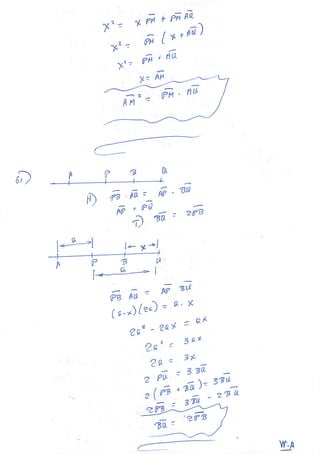 x² = x PM + PM AQ
x² = PM ( x + AQ )
x² = PM · MQ
x = AM
AM² = PM · MQ
61)
A P B Q
H) PB · AQ = AP · BQ
AP = PQ
T) BQ = 2PB
a x
A P B Q
a
PB AQ = AP BQ
(a-x)(2a) = a · x
2a² - 2ax = ax
2a² = 3ax
2a = 3x
2 PQ = 3 BQ
2 ( PB + BQ ) = 3BQ
2PB = 3BQ - 2BQ
BQ = 2PB
W.A